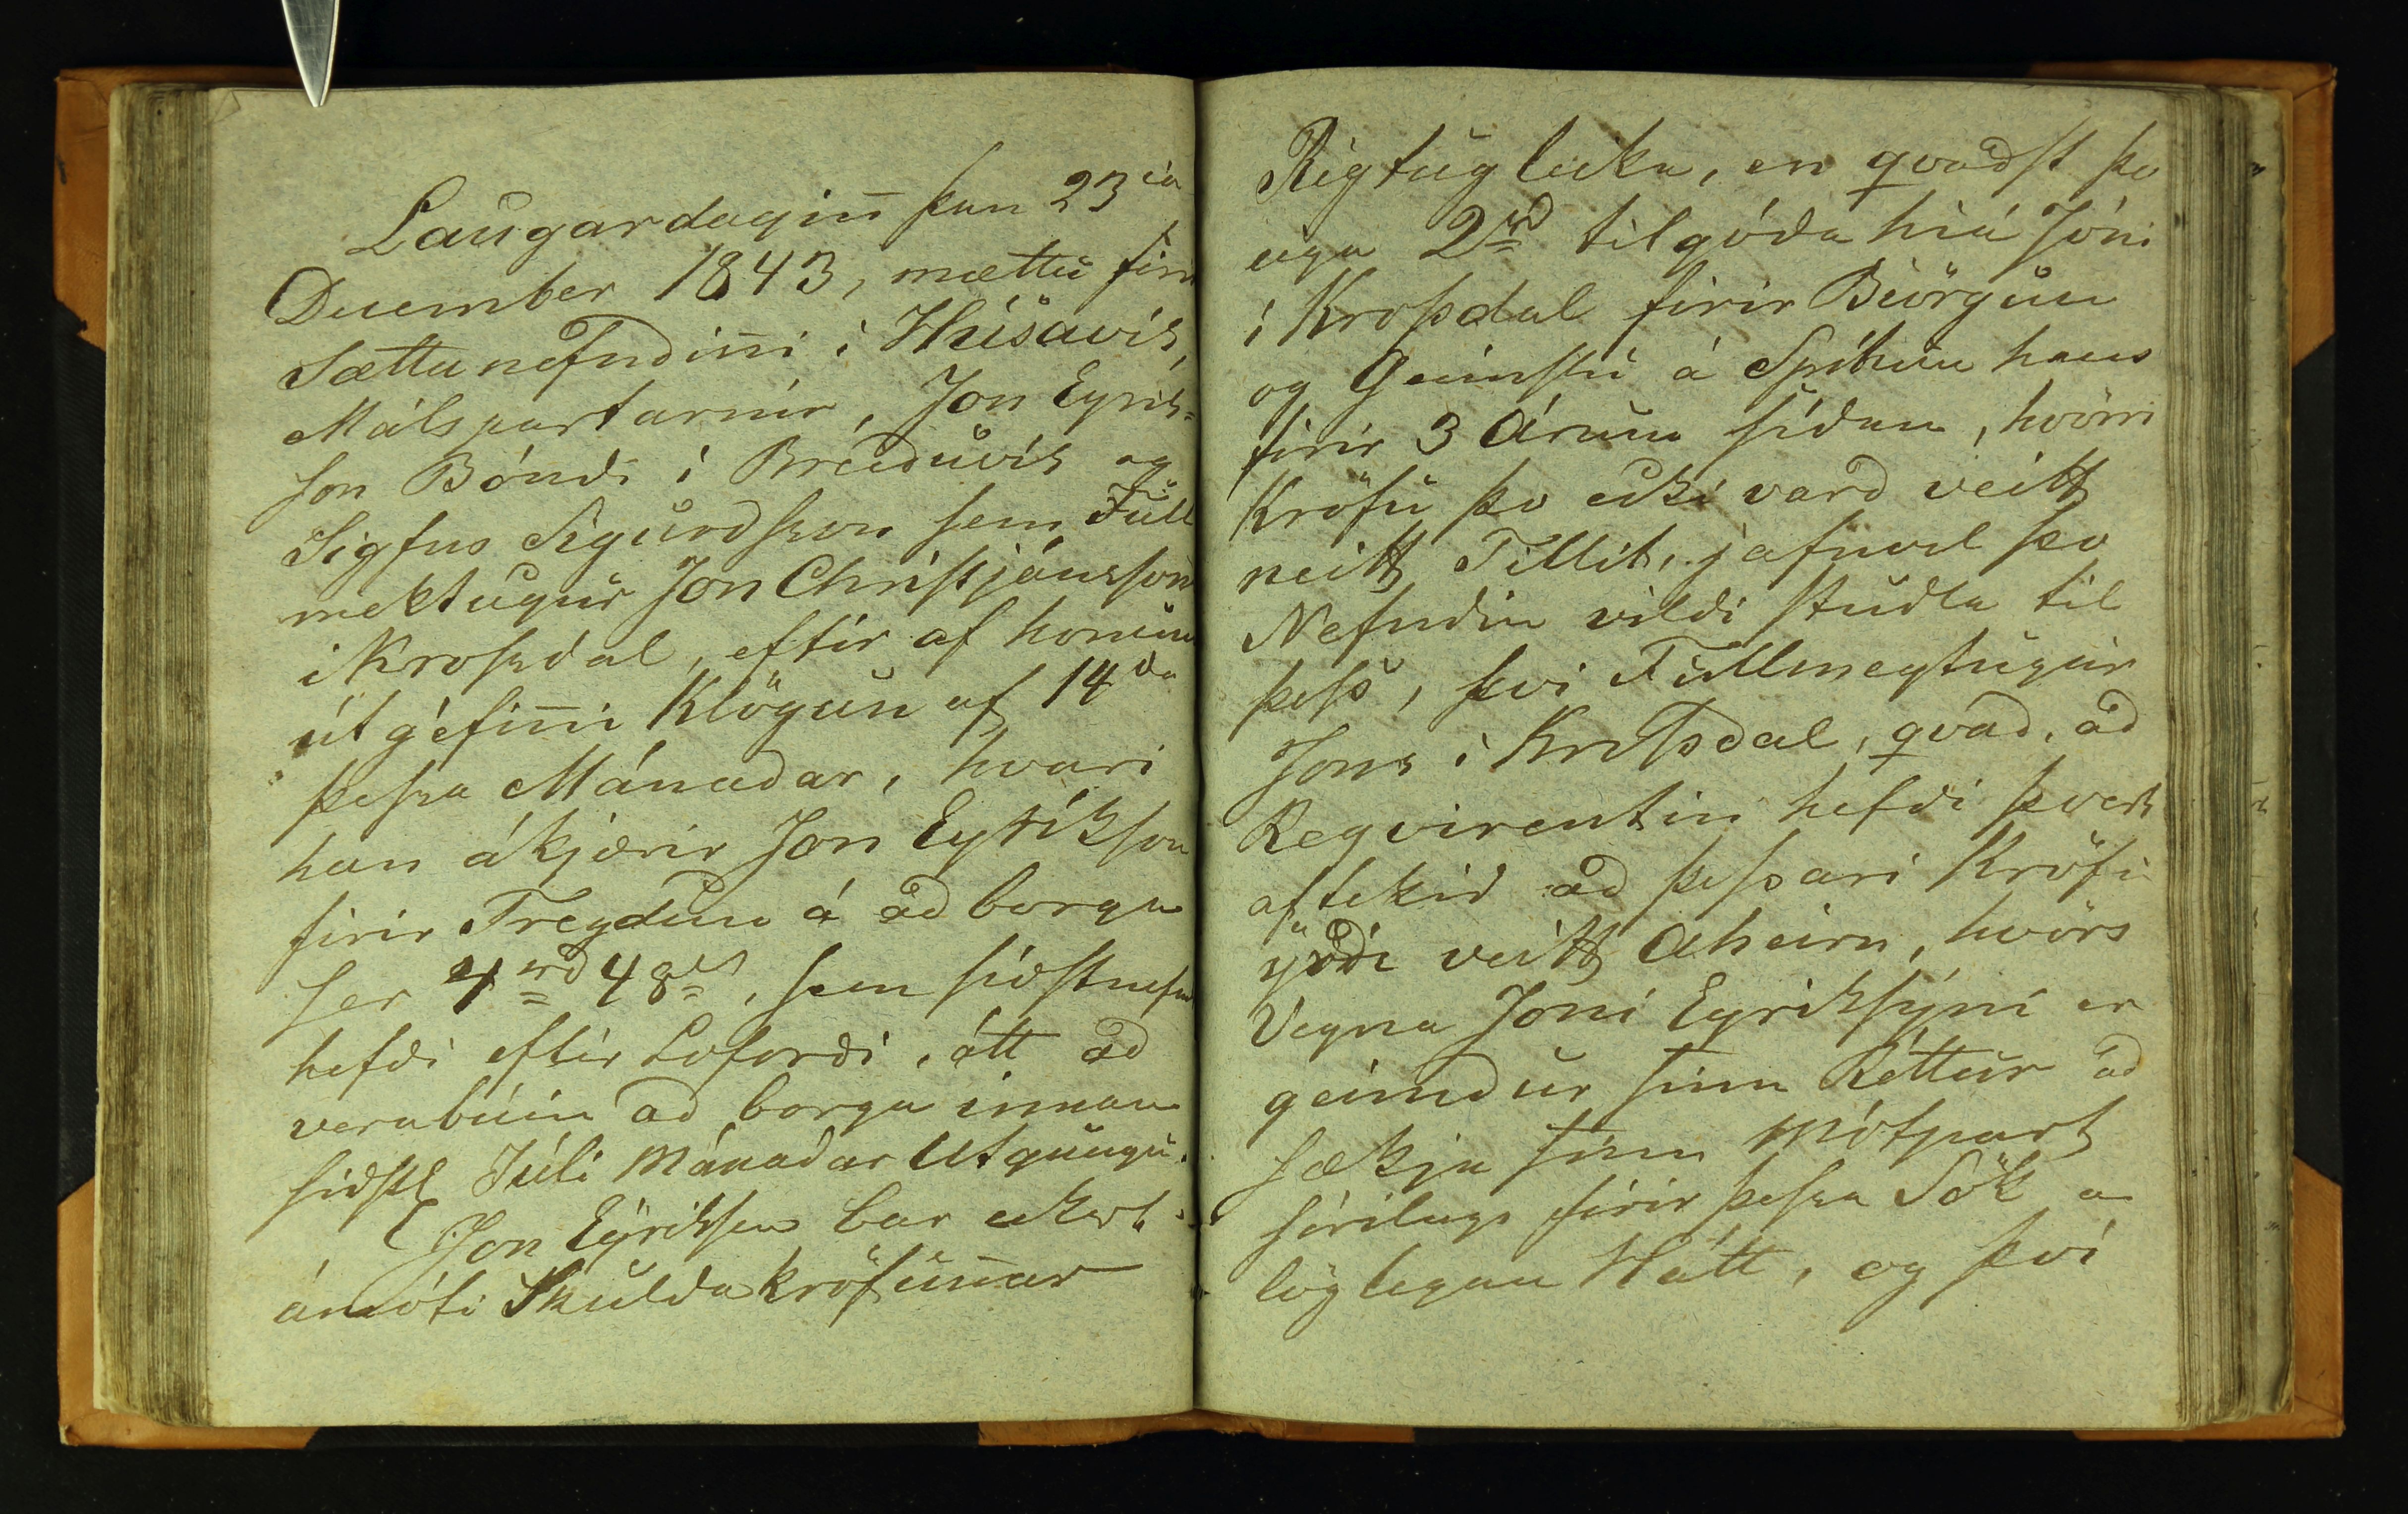 Laugardaginn þan 23ia
December 1843, mættu firir
Sættanefndinni i Húsavik,
Málspartarnir, Jon Eyrik=
son Bóndi i Breiduvik og
Sigfus Sigurdsson sem Full
mektugur Jon Christjánsson
i Krossdal, eftir af honum
útgéfinni Klögun af 14da
þessa Mánadar, hvari
han ákjærir Jon Eyrikson
firir Tregdun á ad borga
ser 4rd 48s, sem sidstnefn
hefdi eftir Loforði, átt ad
verabúin ad borga innan
sidstl Júli Mánadar Utgungu.
Jon Eyriksson bar eckert
ámóti Skuldakröfunnar
Rigtugleika, en qvadst þo
eiga 2rd tilgóda hiá Jóni
i Krossdal firir Biörgun
og Geimslu á Spítum hans
firir 3 Árum sidan, hvörri
Kröfu þo ecki vard veitt
neitt Tillit, jafnvel þo
Nefndin vildi studla til
þess, þvi Fullmegtugur
Jons i Krossdal, qvad, ad
Reqvirentin hefdi þvert
aftekid ad þessari Kröfu
yrdi veitt Aheirn, hvörs
Vegna Joni Eyriksyni er
geimdur sinn Rettur ad
sækja sinn Mótpart
sérilags firir þessa Sök a
löglegan Hátt, og þvi